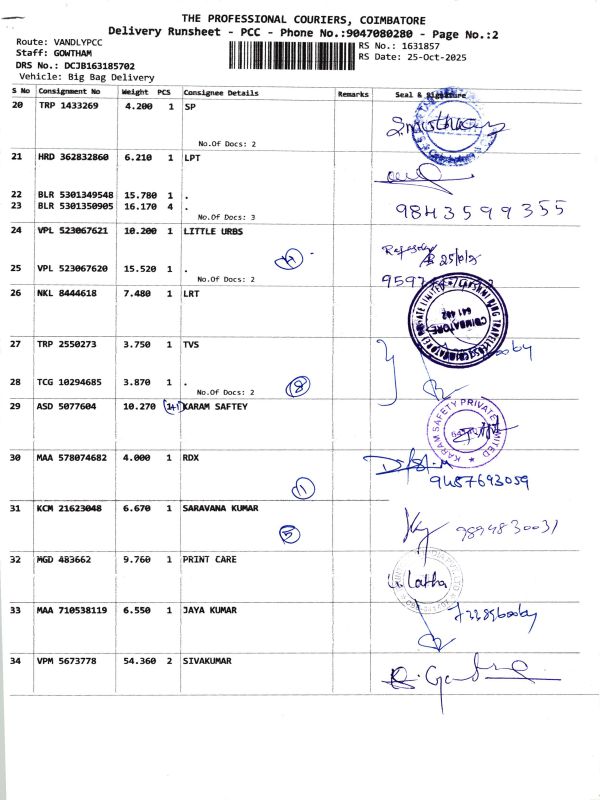 THE PROFESSIONAL COURIERS, COIMBATORE
Delivery Runsheet - PCC - Phone No.:9047080280 - Page No.:2
Route: VANDLYPCC
Staff: GOWTHAM
DRS No.: DCJB163185702
Vehicle: Big Bag Delivery
RS No.: 1631857
RS Date: 25-Oct-2025
S No Consignment No Weight PCS Consignee Details Remarks Seal & Signature
20 TRP 1433269 4.200 1 SP
No.Of Docs: 2
21 HRD 362832860 6.210 1 LPT
22 BLR 5301349548 15.780 1 .
23 BLR 5301350905 16.170 4 .
No.Of Docs: 3
9843599355
24 VPL 523067621 10.200 1 LITTLE URBS
25 VPL 523067620 15.520 1 .
No.Of Docs: 2
26 NKL 8444618 7.480 1 LRT
COIMBATORE
641 402
27 TRP 2550273 3.750 1 TVS
28 TCG 10294685 3.870 1 .
No.Of Docs: 2
8
29 ASD 5077604 10.270 1+1 KARAM SAFTEY
KARAM SAFETY PRIVATE LIMITED
30 MAA 578074682 4.000 1 RDX
1
9487693059
31 KCM 21623048 6.670 1 SARAVANA KUMAR
5
9894830031
32 MGD 483662 9.760 1 PRINT CARE
Latha
33 MAA 710538119 6.550 1 JAYA KUMAR
34 VPM 5673778 54.360 2 SIVAKUMAR